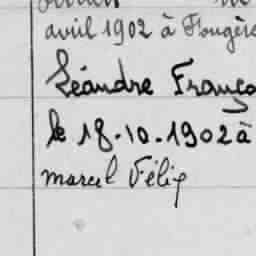 avril 1902 à Fougères
Léandre Franço
le 18.10.1902 à
marcel Félix